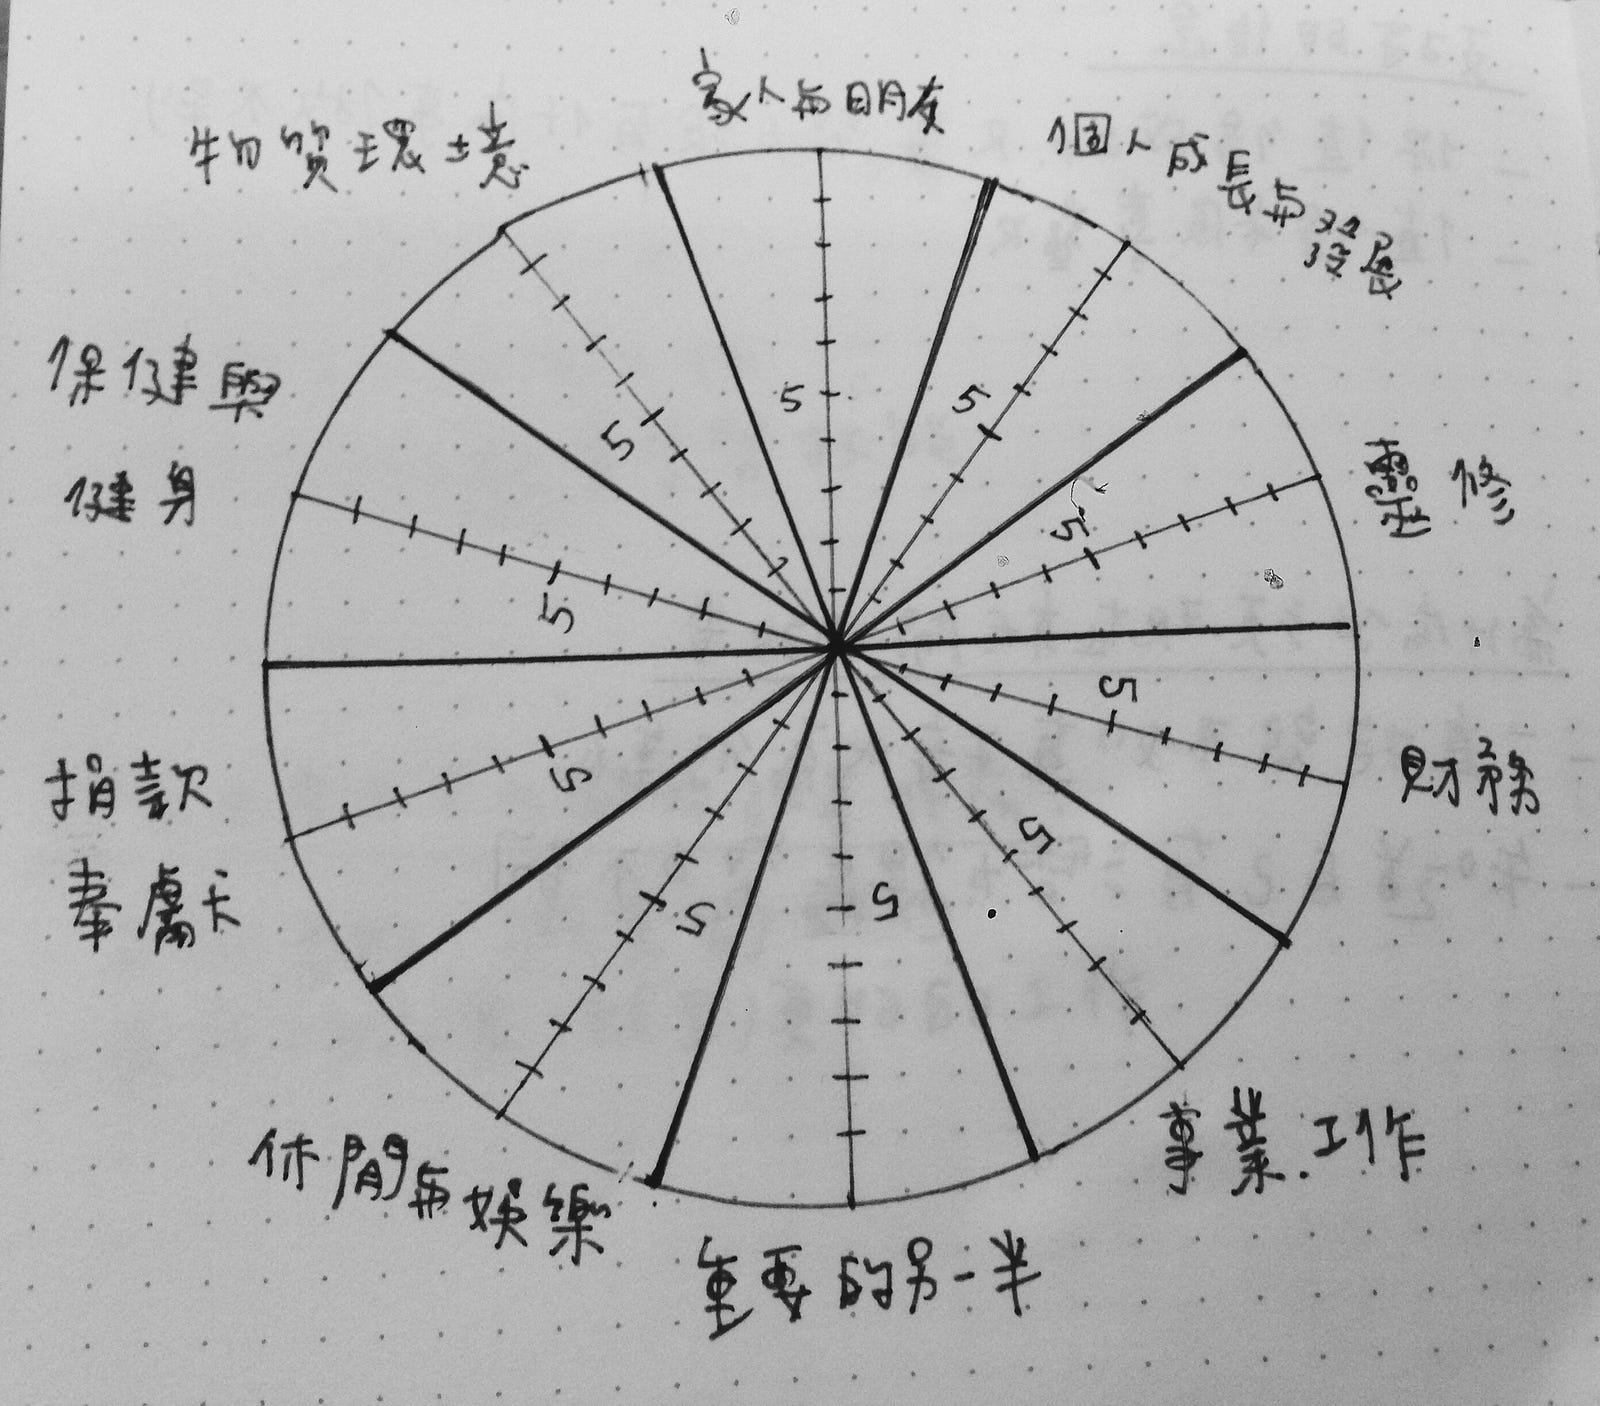 家人與朋友
個人成長與發展
靈修
財務
事業.工作
重要的另一半
休閒與娛樂
捐款
奉獻
保健與
健身
物質環境
5
5
5
5
5
5
5
5
5
5